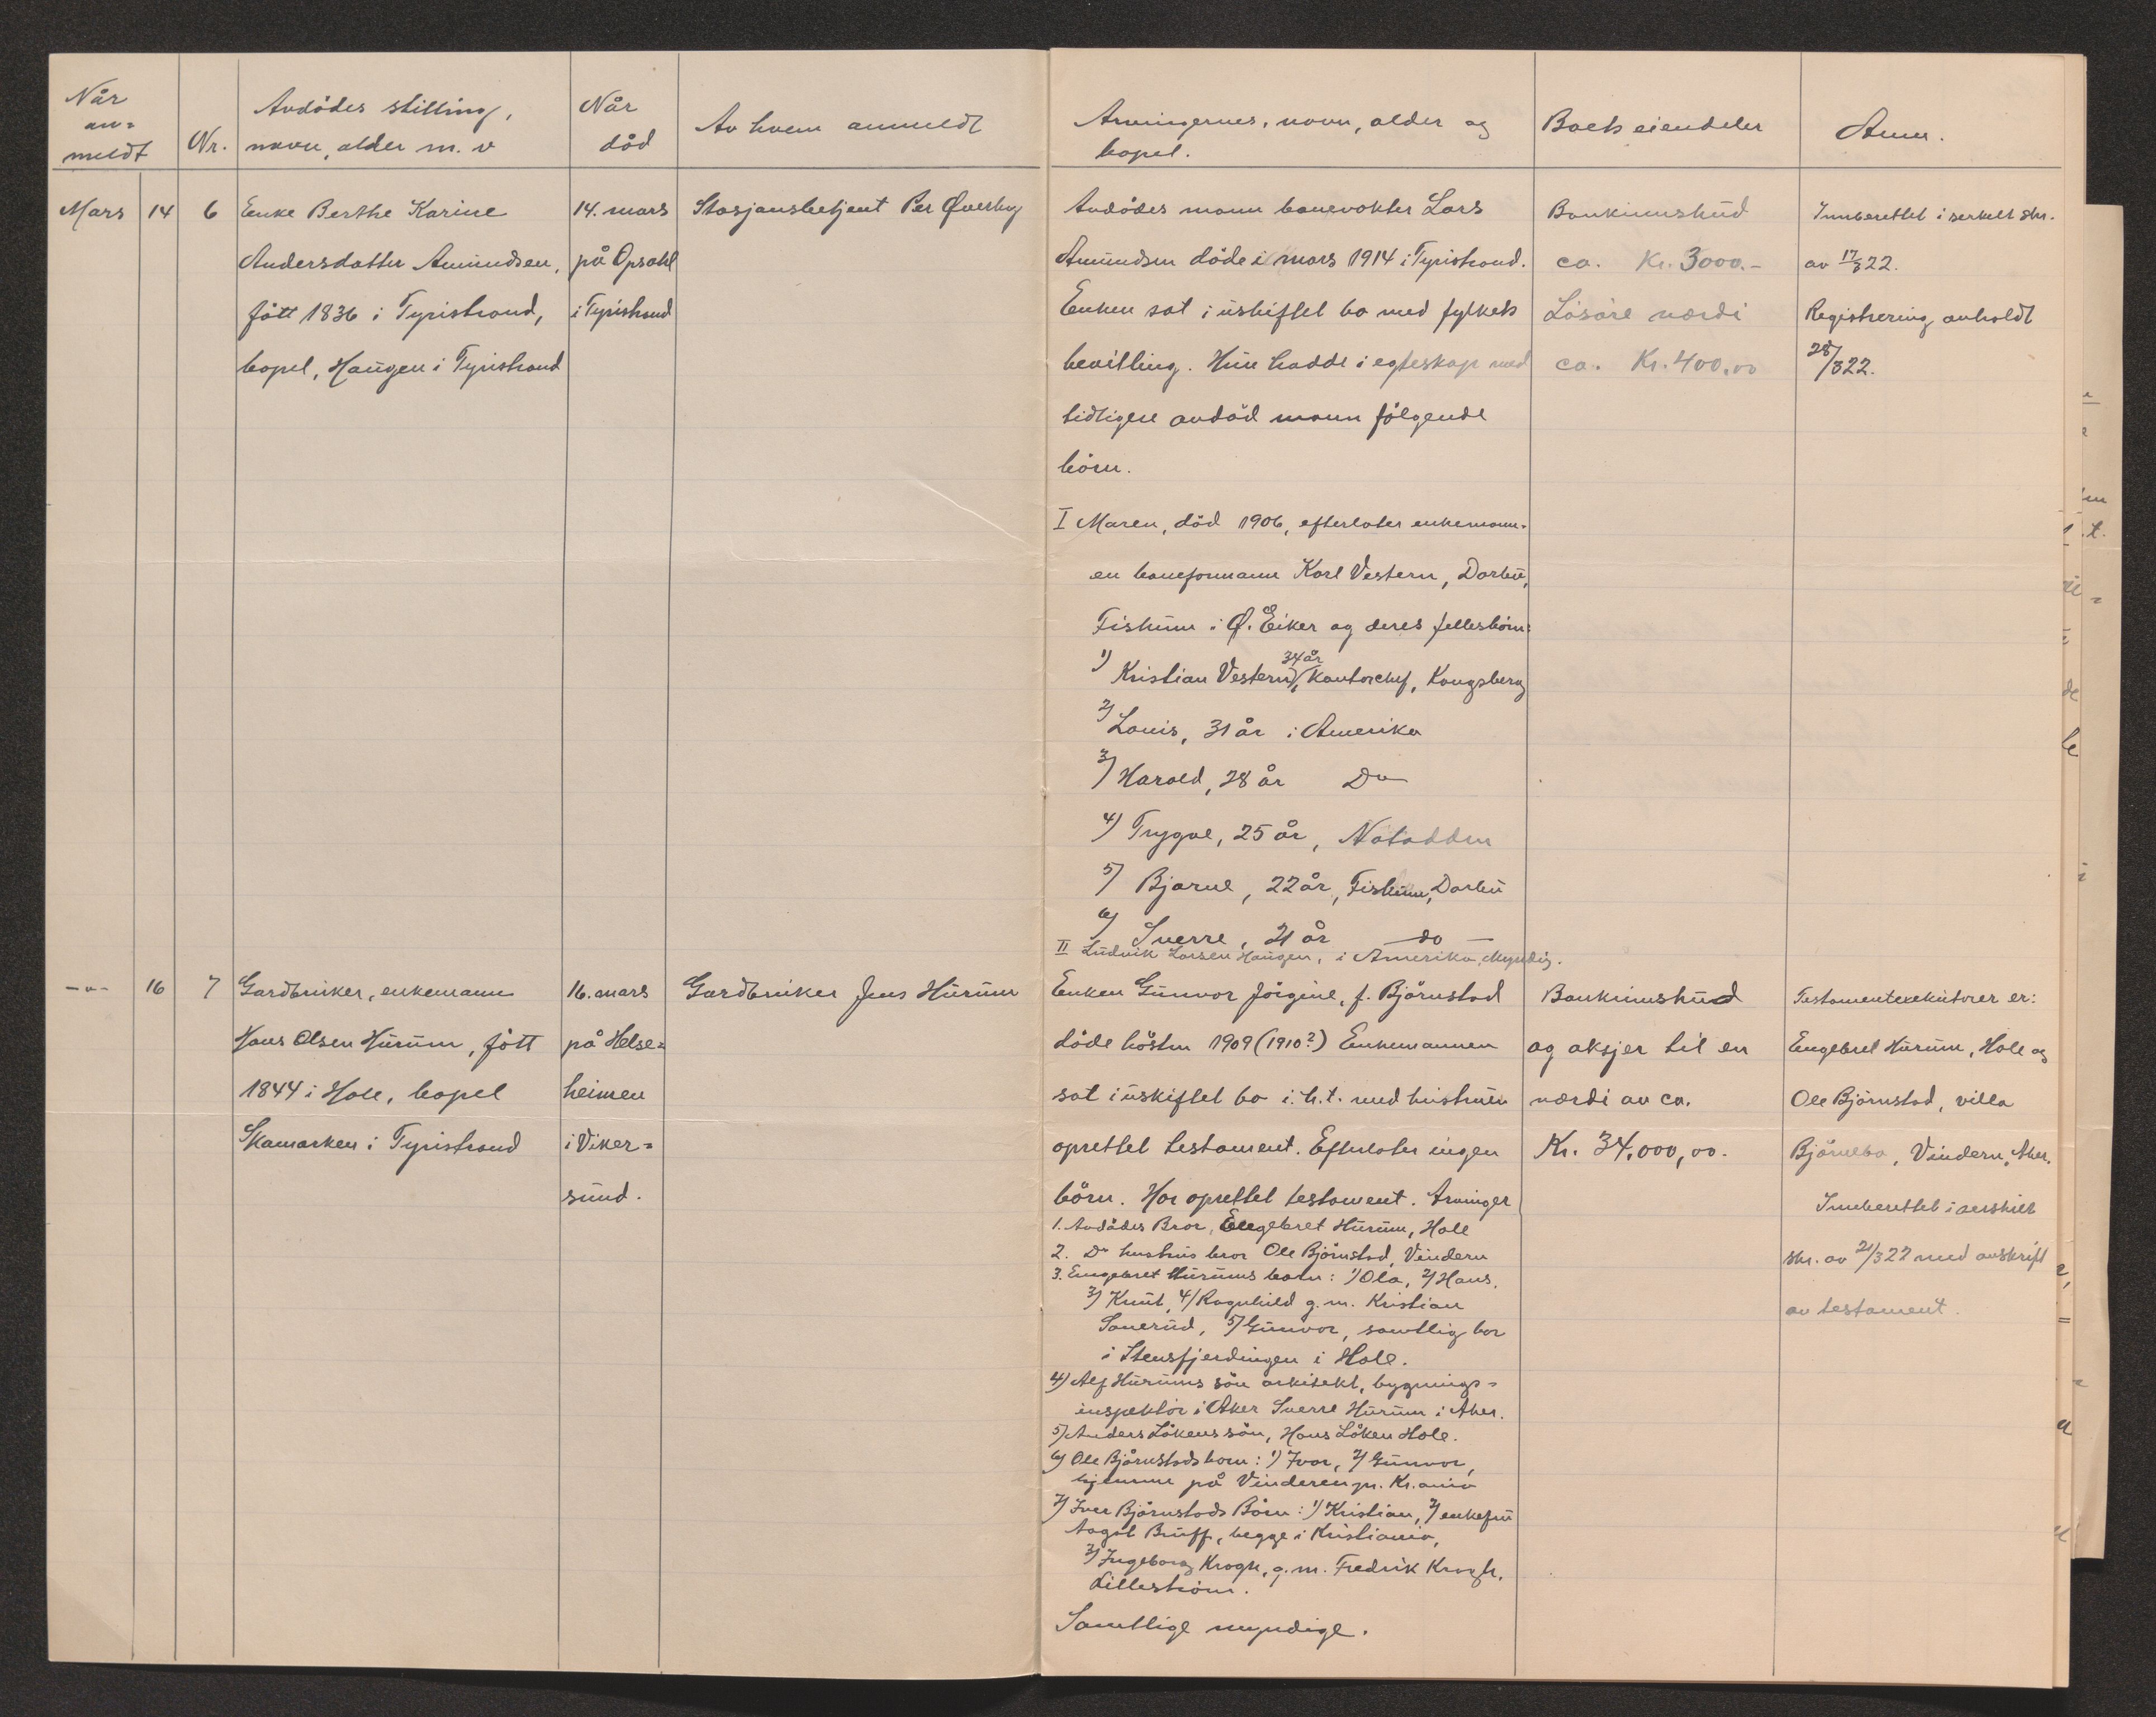 Når
an=
meldt
Nr.
Avdödes stilling,
navn, alder m. v
Når
död
Av hvem anmeldt
Arvingernes, navn, alder og
bopel.
Boets eiendeler
Anm.
Mars 14 6 Enke Berthe Karine
Andersdatter Amundsen,
født 1836 i Tyristrand,
bopel, Haugen i Tyristrand
14. mars
på Opsahl
i Tyristrand
Stasjonsbetjent Per Øverby
Avdödes mann banevokter Lars
Amundsen döde i mars 1914 i Tyristrand.
Enken sat i uskiftet bo med fylkets
bevilling. Hun hadde i egteskap med
tidligere avdöd mann fölgende
börn.
I Maren, död 1906, efterlater enkemann-
en baneformann Karl Vestern, Darbu,
Fiskum i Ø. Eiker og deres fellesbörn:
1) Kristian Vestern, 34 år, kontorchef, Kongsberg
2) Louis, 31 år i Amerika
3) Harald, 28 år Do
4) Trygve, 25 år, Notodden
5) Bjarne, 22 år, Fiskum, Darbu
6) Sverre, 21 år do
II Ludvik Larsen Haugen, i Amerika, Myndig.
Bankinnskud
ca. Kr. 3000.-
Lösöre verdi
ca. Kr. 400,00
Innberettet i serkelt skr.
av 17/3 22.
Registrering avholdt
28/3 22.
-"- 16 7 Gardbruker, enkemann
Hans Olsen Hurum, født
1844 i Hole, bopel
Skamarken i Tyristrand
16. mars
på Helse=
heimen
i Viker=
sund.
Gardbruker Jens Hurum
Enken Gunvor Jörgine, f. Björnstad
döde hösten 1909 (1910?) Enkemannen
sat i uskiftet bo i. h. t. med hustruen
oprettet testament. Efterlater ingen
börn. Har oprettet testament. Arvinger
1. Avdödes Bror, Engebret Hurum, Hole
2. Do hustrus bror Ole Björnstad, Vindern
3. Engebret Hurums barn: 1) Ola, 2) Hans,
3) Knut, 4) Ragnhild g. m. Kristian
Sonerud, 5) Gunvor, samtlig bor
i Stensfjerdingen i Hole.
4) Alf Hurums sön arkitekt, bygnings=
inspektör i Aker Sverre Hurum i Aker.
5) Anders Lökens sön, Hans Löken Hole.
6) Ole Björnstads barn: 1) Ivar, 2) Gunvor,
hjemme på Vinderen pr. Kr.ania
7) Iver Björnstads Börn: 1) Kristian, 2) enkefru
Aagot Bruff, begge i Kristiania,
3) Ingeborg Krogh, g. m. Fredrik Krogh,
Lilleström.
Samtlige myndige.
Bankinnskud
og aksjer til en
verdi av ca.
Kr. 34.000,00.
Testamentexekutorer er:
Engebret Hurum, Hole og
Ole Björnstad, villa
Björnebo, Vindern, Aker.
Innberettet i serskilt
skr. av 21/3 22 med avskrift
av testament.